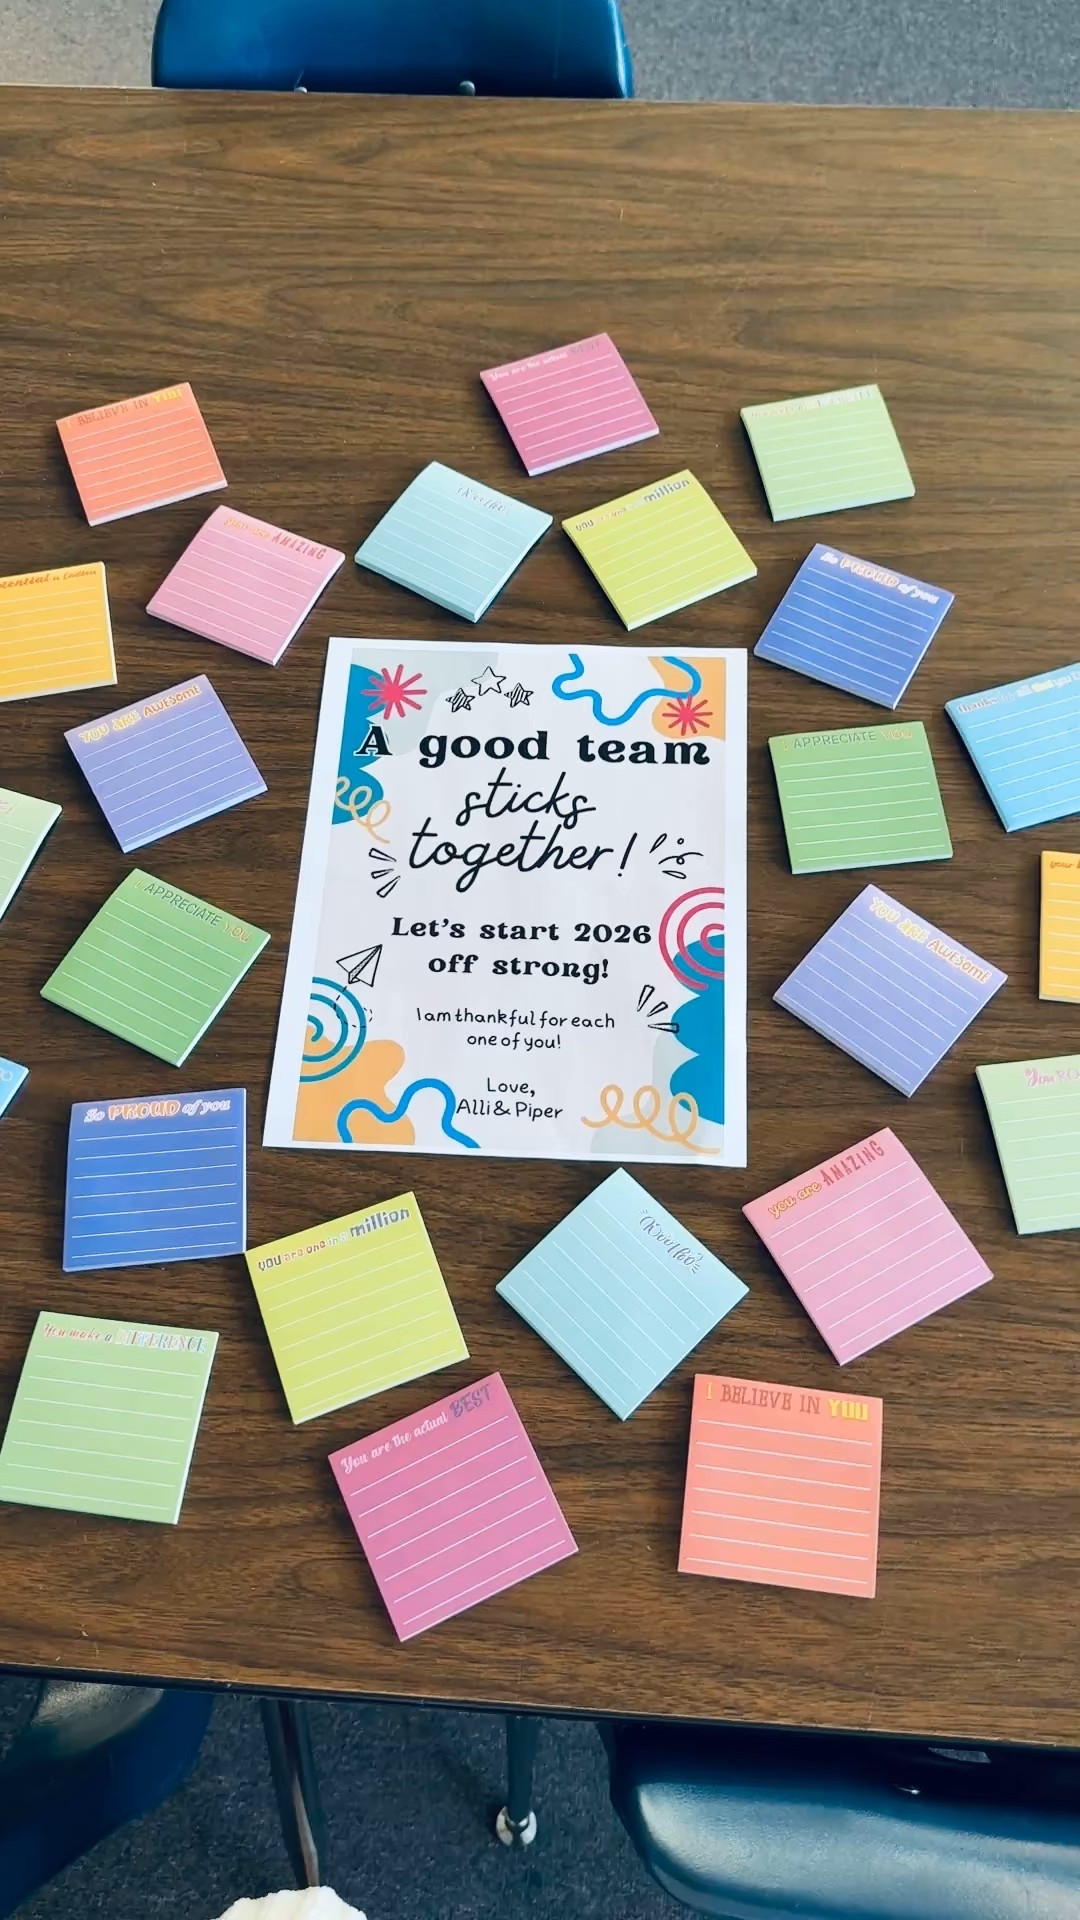 You are the actual BEST
I BELIEVE IN YOU!
you are one in a million
you are AMAZING
So PROUD of you
YOU ARE AWESOME
I APPRECIATE YOU
A good team
sticks
together!
Let's start 2026
off strong!
I am thankful for each
one of you!
Love,
Alli & Piper
I APPRECIATE YOU
YOU ARE AWESOME
So PROUD of you
you are AMAZING
you are one in a million
Woohoo
You make a DIFFERENCE
You are the actual BEST
I BELIEVE IN YOU